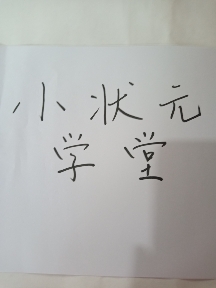 小状元
学堂